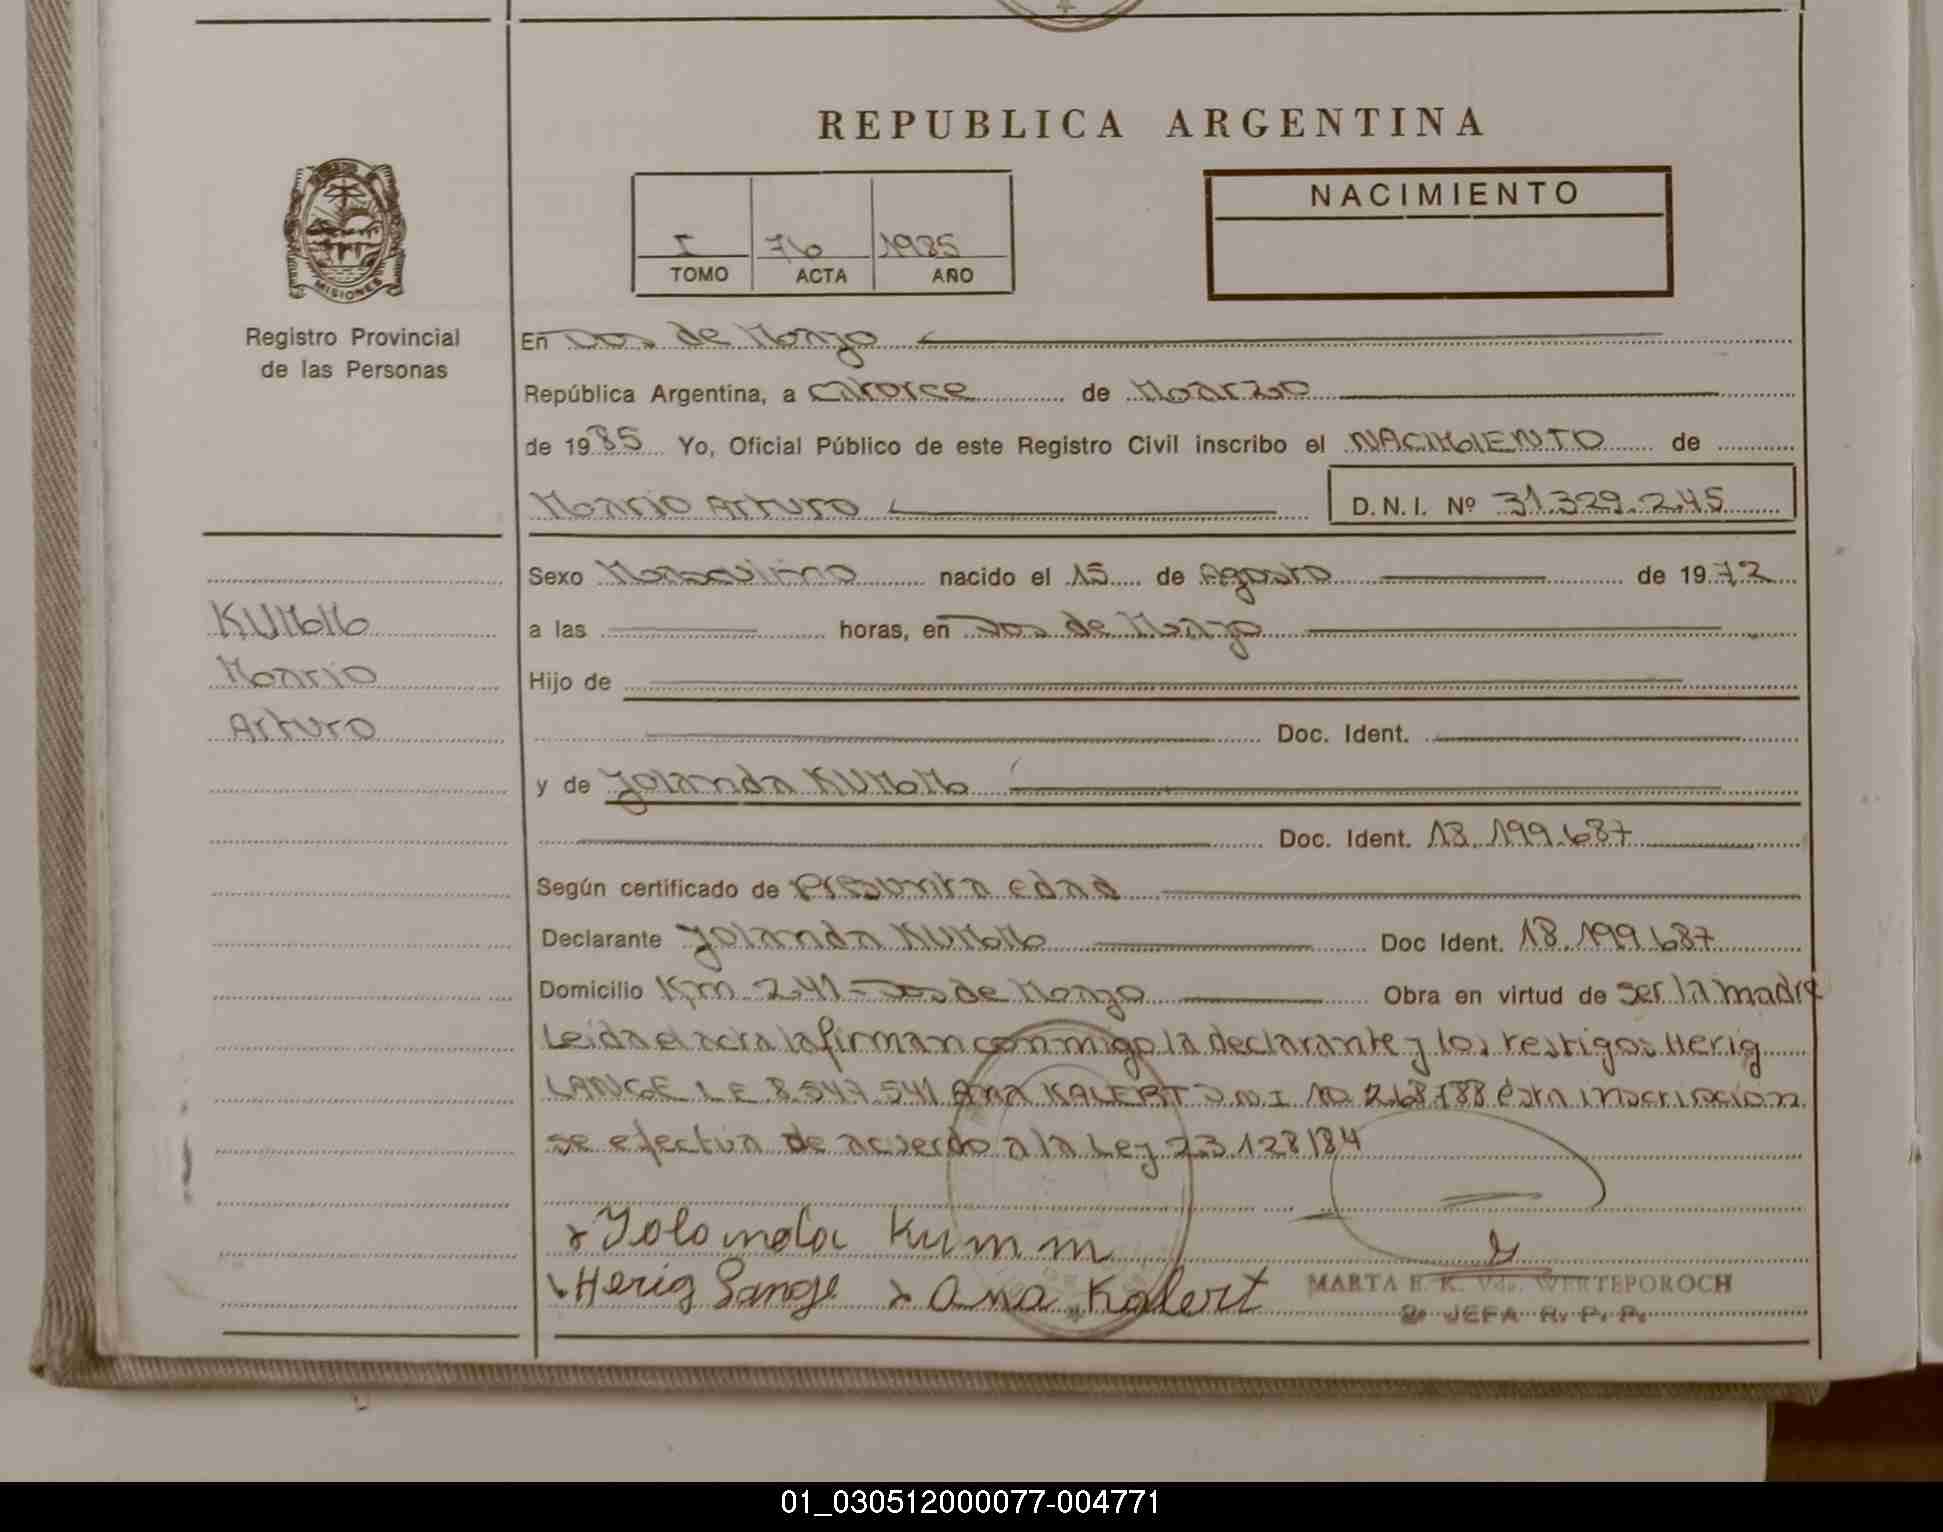 REPUBLICA ARGENTINA
NACIMIENTO
I 76 1985
TOMO ACTA AÑO
MISIONES
Registro Provincial
de las Personas
En Dos de Mayo
República Argentina, a catorce de Marzo
de 1985 Yo, Oficial Público de este Registro Civil inscribo el NACIMIENTO de
Mario Arturo D.N.I. Nº 31.329.245
Sexo Masculino nacido el 15 de Agosto de 1972
KUMM
Mario
Arturo
a las horas, en Dos de Mayo
Hijo de
Doc. Ident.
y de Yolanda KUMM
Doc. Ident. 18.199.687
Según certificado de presunta edad
Declarante Yolanda KUMM Doc Ident. 18.199.687
Domicilio Km 241 - Dos de Mayo Obra en virtud de ser la madre
Leida el acta la firman conmigo la declarante y los testigos Herig
LANGE L E 8.547.541 Ana KALERT D N I 10.268.788 esta inscripcion
se efectua de acuerdo a la Ley 23.128/84
Yolanda Kumm
Herig Lange Ana Kalert
MARTA E. K. Vda. WERTEPOROCH
JEFA R. P. P.
01_030512000077-004771